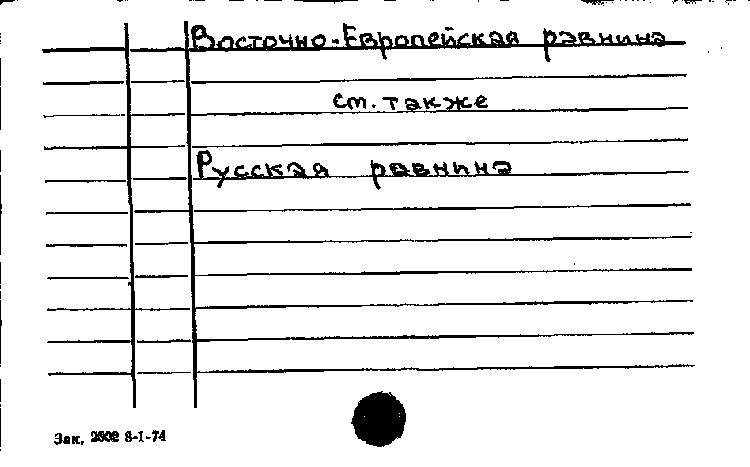 Восточно-Европейская равнина
см. также
Русская равнина
Зак. 2502 8-I-74